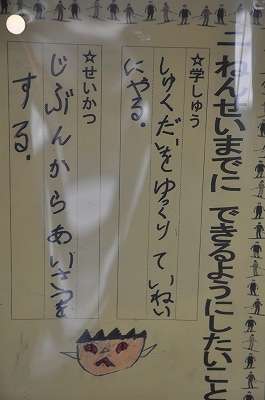 二ねんせいまでに できるようにしたいこと
☆学しゅう
しゅくだいをゆっくり ていねい
にやる.
☆せいかつ
じぶんから あいさつを
する.